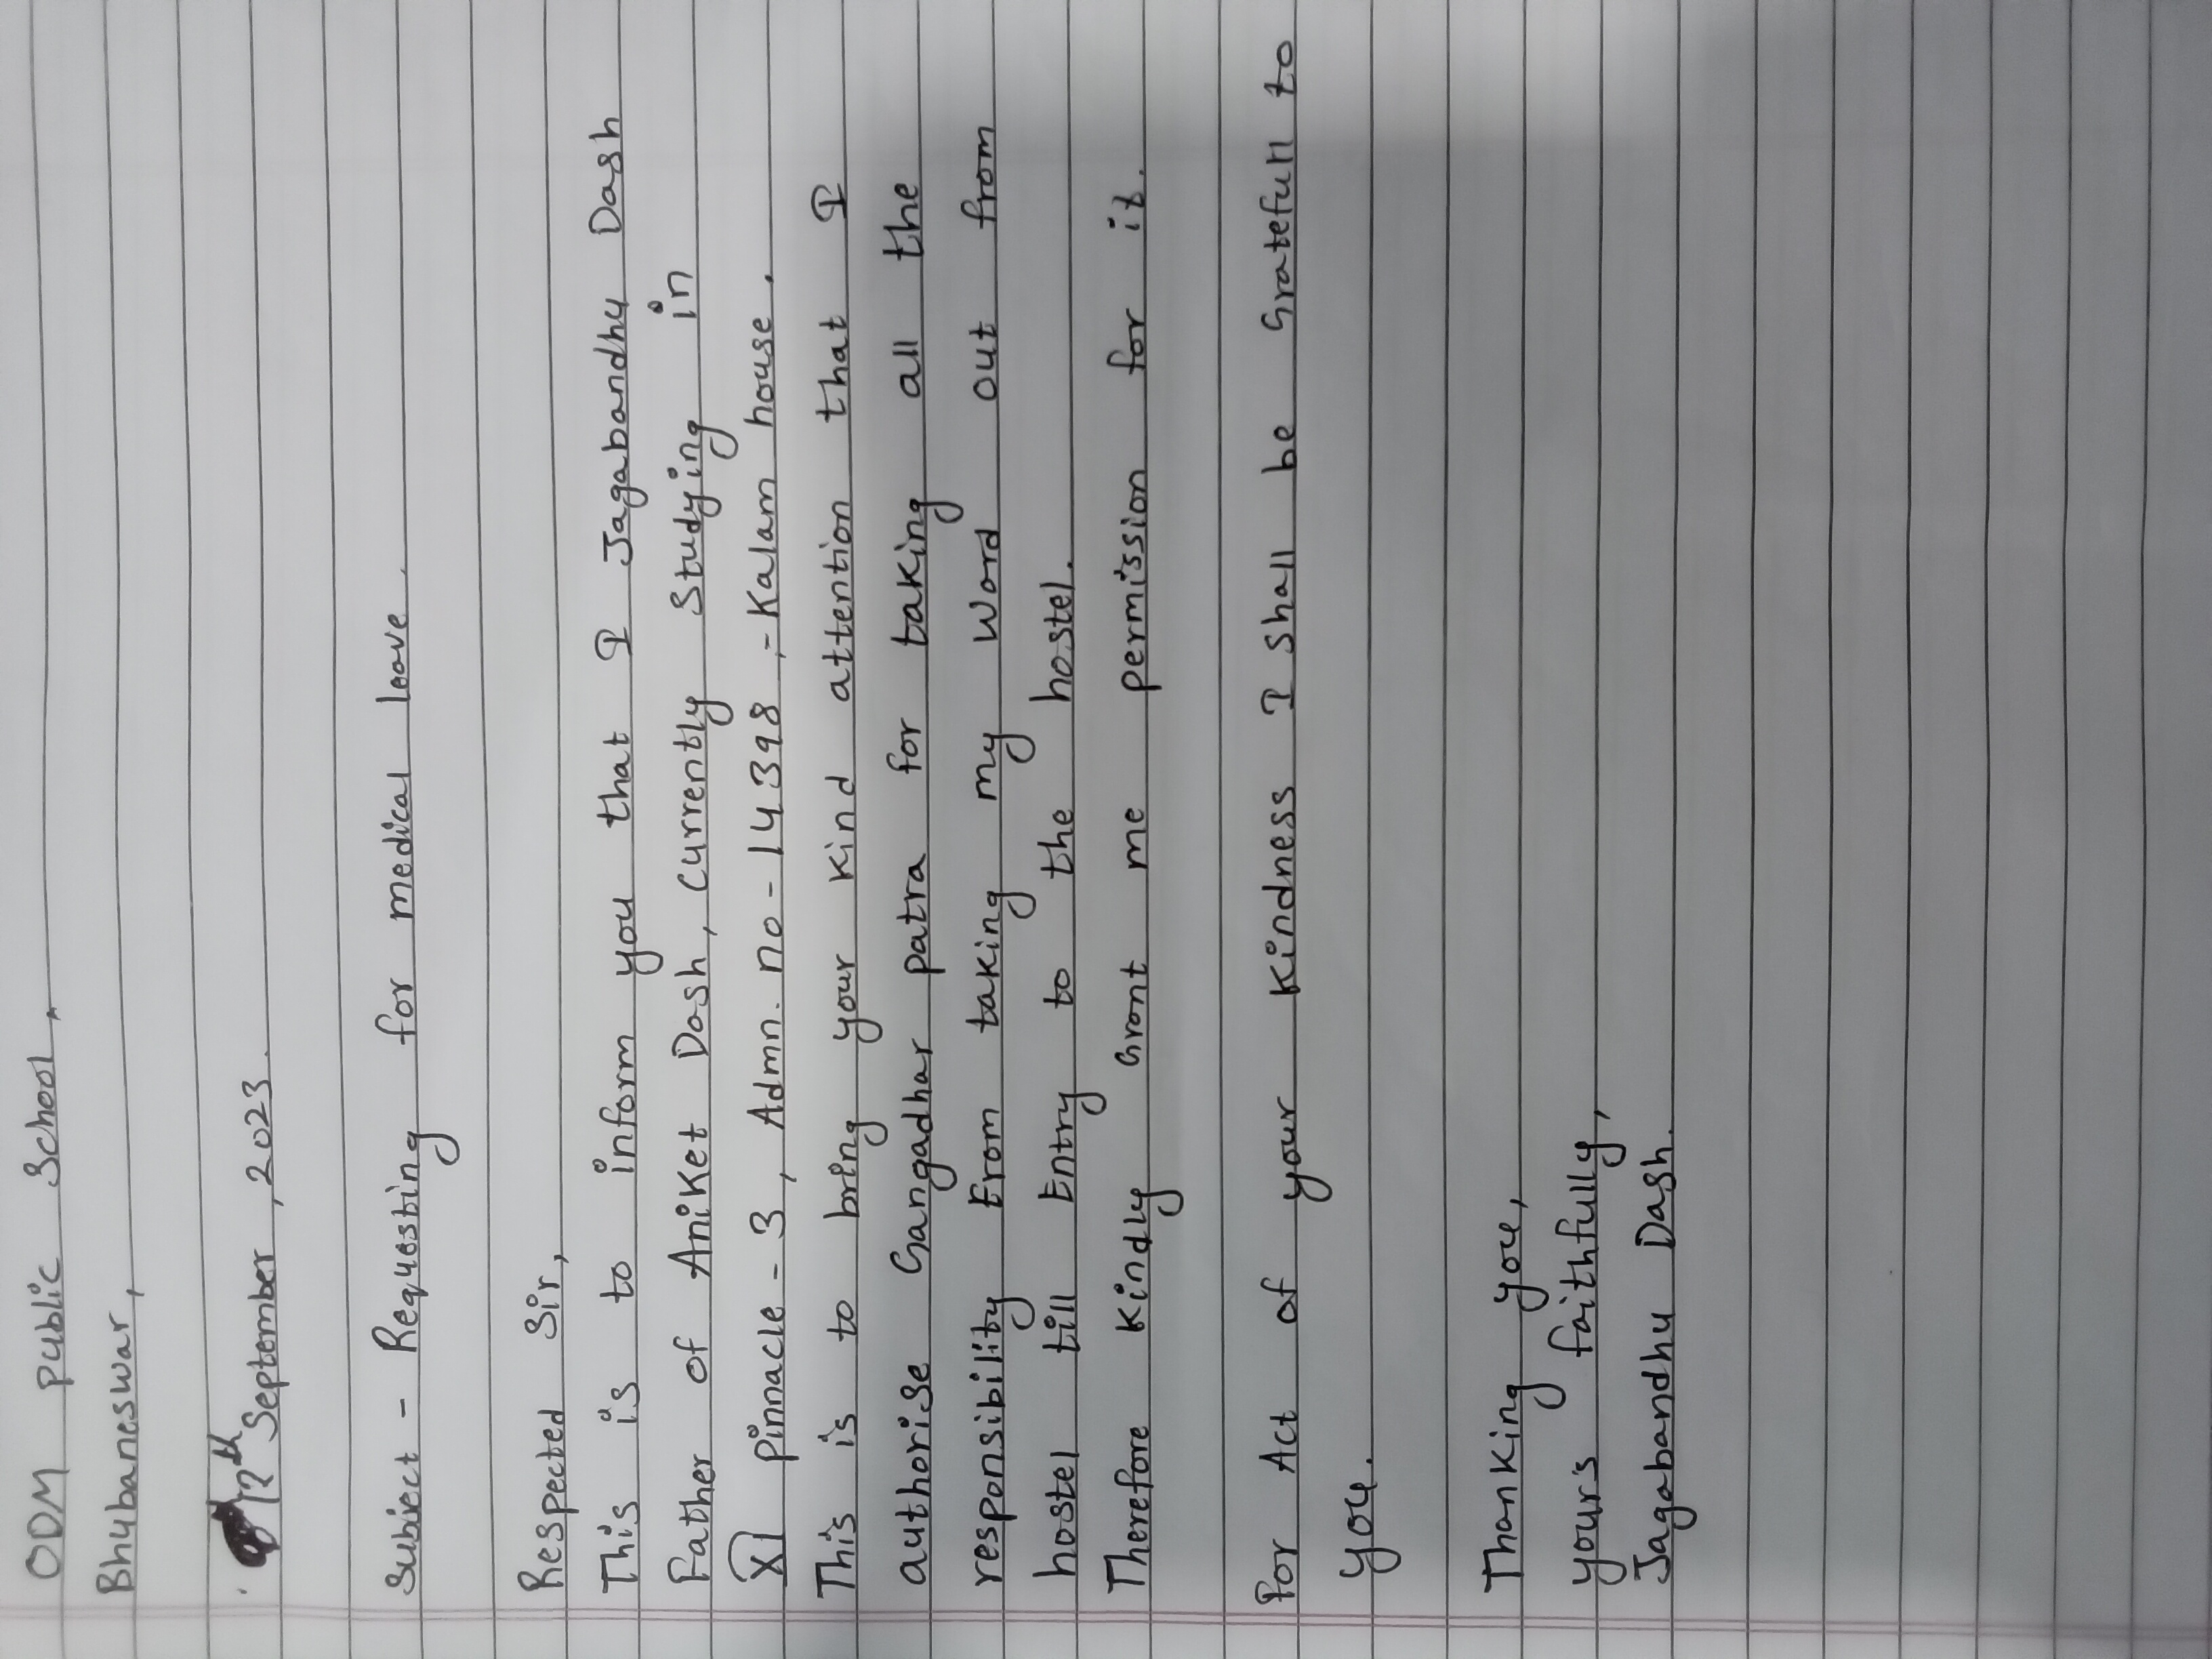 ODM public School,
Bhubaneswar,
12th September, 2023.
Subject - Requesting for medical leave.
Respected Sir,
This is to inform you that I Jagabandhu Dash
Father of Aniket Dash, Currently Studying in
XI pinnacle - 3, Admn. no - 14398, - Kalam house.
This is to bring your kind attention that I
authorise Gangadhar patra for taking all the
responsibility From taking my Word out from
hostel till Entry to the hostel.
Therefore Kindly Grant me permission for it.
For Act of your Kindness I Shall be Gratefull to
you.
Thanking you,
your's faithfully,
Jagabandhu Dash.